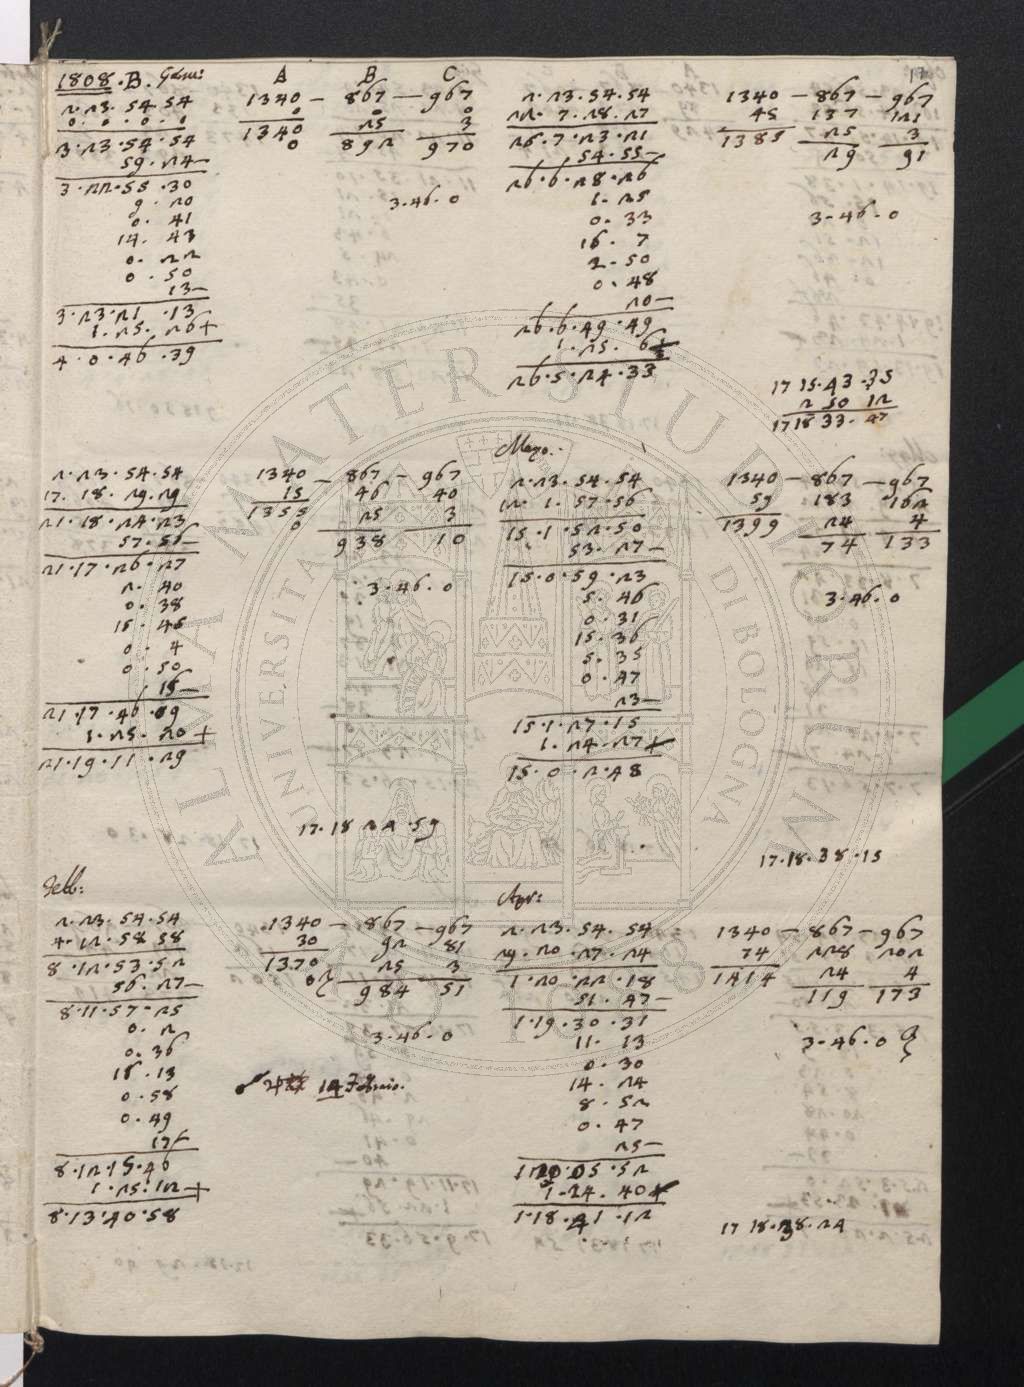 1808.B. Genn:
2.23.54.54
0.0.0.0
3.23.54.54
59.24—
3.22.55.30
9.20
0.41
14.43
0.22
0.50
13—
3.23.21.13
1.25.26+
4.0.46.39
A B C
1340 — 867 — 967
0 0 0
25 3
1340 892 970
0
3.46.0
2.23.54.54
22.7.28.27
26.7.23.21
54.55—
26.6.28.26
1.25
0.33
16.7
2.50
0.48
20—
26.6.49.49
1.25.6+
26.5.24.33
1340 — 867 — 967
45 137 121
25 3
1385 29 91
3.46.0
17 15.43.35
2 50 12
17 18 33.47
2.23.54.54
17.18.29.29
21.18.24.23
57.56—
21.17.26.27
2.40
0.38
15.45
0.4
0.50
15—
21.17.46.29
1.25.20+
21.19.11.29
1340 — 867 — 967
15 46 40
25 3
1355 938 10
0
3.46.0
17.18 24.59
Marzo.
2.23.54.54
12.1.57.56
15.1.52.50
53.27—
15.0.59.23
5.46
0.31
15.36
5.35
0.47
23—
15.1.27.15
1.24.27+
15.0.2.48
1340 — 867 — 967
59 183 162
24 4
1399 74 133
3.46.0
17.18.38.15
Febb:
2.23.54.54
4.12.58 58
8.12.53.52
56.27—
8.11.57.25
0.2
0.36
15.13
0.58
0.49
17—
8.12.15.46
1.25.12+
8.13.40.58
1340 — 867 — 967
30 92 81
25 3
1370 984 51
3.46.0
Apr:
2.23.54.54
29.20.27.24
1.20.22.18
51.47—
1.19.30.31
11.13
0.30
14.24
8.52
0.47
25—
1.24.40+
1.18.41.12
1340 — 867 — 967
74 228 202
24 4
1414 119 173
3.46.0
17 18.38.24